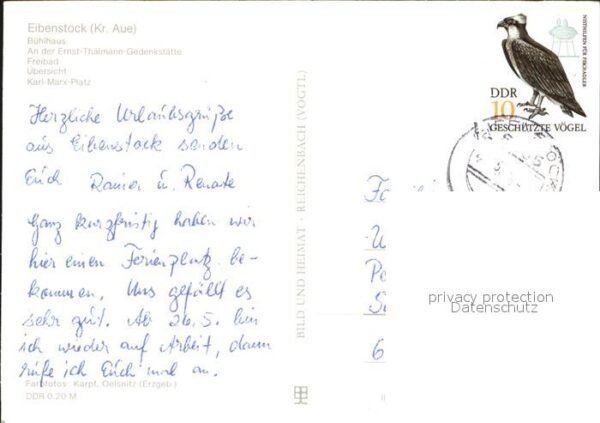 Eibenstock (Kr. Aue)
Bühlhaus
An der Ernst-Thälmann-Gedenkstätte
Freibad
Übersicht
Karl-Marx-Platz
Herzliche Urlaubsgrüße
aus Eibenstock senden
Euch Rainer u. Renate
Ganz kurzfristig haben wir
hier einen Ferienplatz be-
kommen. Uns gefällt es
sehr gut. Ab 26.5. bin
ich wieder auf Arbeit, dann
rufe ich Euch mal an.
Farbfotos: Karpf, Oelsnitz (Erzgeb.)
DDR 0,20 M
BILD UND HEIMAT · REICHENBACH (VOGTL)
NISTHILFEN FÜR FISCHADLER
DDR
10
GESCHÜTZTE VÖGEL
Fa
U
Pe
6
privacy protection
Datenschutz